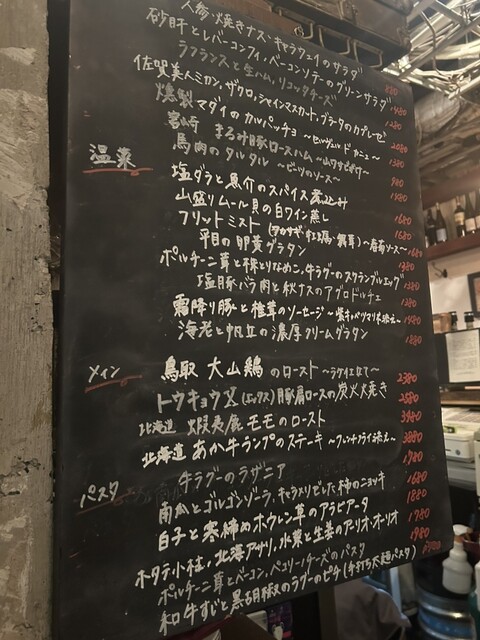 人参・焼きナス・キャラウェイのサラダ 880
砂肝とレバーコンフィ・ベーコンソテーのグリーンサラダ 1480
ラフランスと生ハム、リコッタチーズ 1280
佐賀美人ミカン、ザクロ、シャインマスカート、ブラータのカプレーゼ 2080
燻製マダイのカルパッチョ 1380
宮崎 まるみ豚ロースハム
馬肉のタルタル ～ビーツのソース～
温菜
塩ダラと魚介のスパイス煮込み
山盛りムール貝の白ワイン蒸し 1680
フリットミスト
平目の卵黄グラタン
ポルチーニ茸と株とりなめこ、牛ラグーのスクランブルエッグ
塩豚バラ肉と秋ナスのアグロドルチェ 1380
霜降り豚と椎茸のソーセージ 1480
海老と帆立の濃厚クリームグラタン 1880
メイン
鳥取 大山鶏のロースト ～ラタトゥイユ 2380
トウキョウX(エックス)豚肩ロースの炭火火焼き 2580
北海道 蝦夷鹿モモのロースト 3980
北海道 あか牛ランプのステーキ ～フレンチフライ添え～ 3880
パスタ
牛ラグーのラザニア 1780
南瓜とゴルゴンゾーラ、キャラメリゼした柿のニョッキ 1680
白子と寒締めホウレン草のアラビアータ 1880
ホタテ小柱、北海アサリ、水菜と生姜のアーリオ・オーリオ 1780
ポルチーニ茸とベーコン、ペコリーノチーズのパスタ 1980
和牛すじと黒胡椒のラグーのピチ(手打ち太麺パスタ)